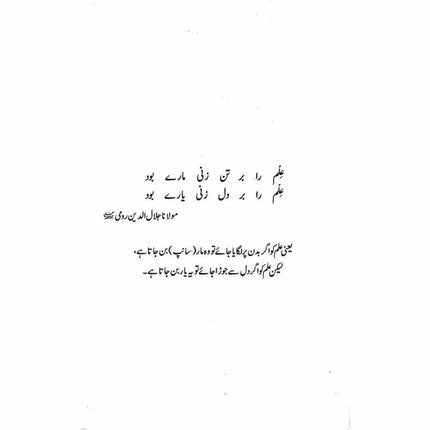 عِلْم را بر تن زنی مارے بود
عِلْم را بر دل زنی یارے بود
مولانا جلال الدین رومی
یعنی علم کو اگر بدن پر لگایا جائے تو وہ مار (سانپ) بن جاتا ہے،
لیکن علم کو اگر دل سے جوڑا جائے تو یہ یار بن جاتا ہے۔